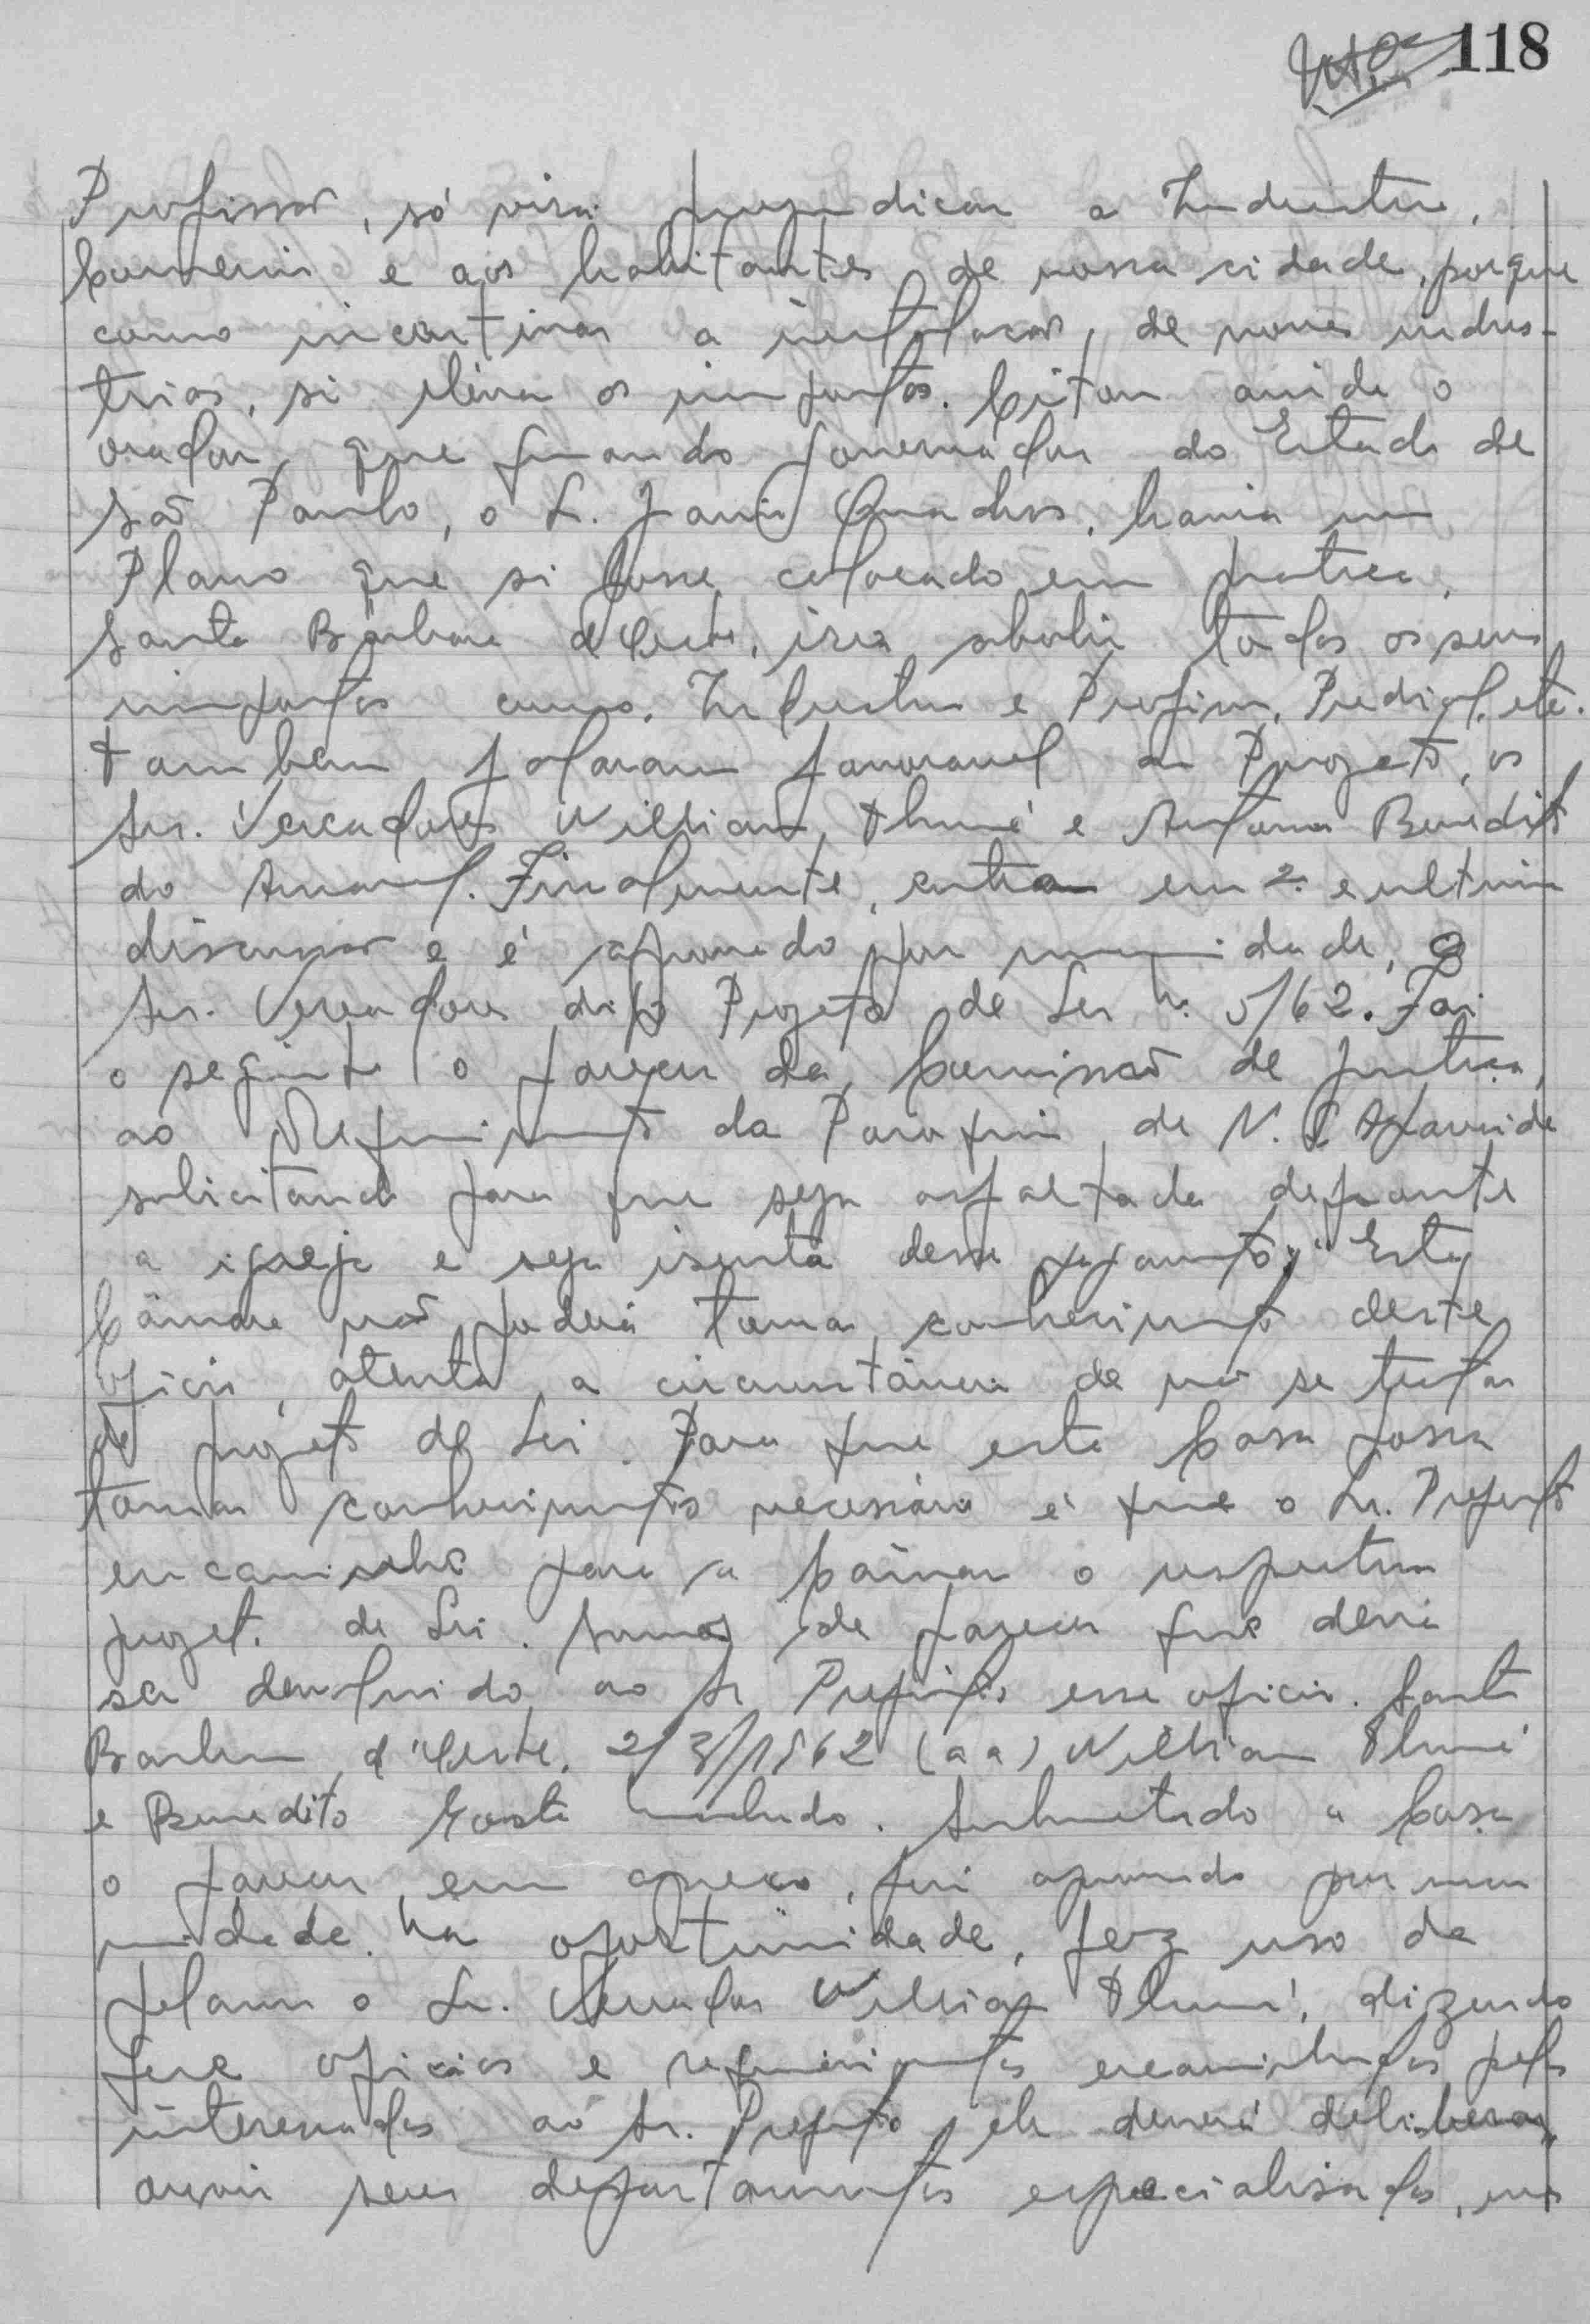 118
Profissão, só virá prejudicar a Industria,
Comercio e aos habitantes de nossa cidade, porque
como incentivar a instalação, de novas indus-
trias, si eleva os impostos. Citou ainda o
orador, que quando Governador do Estado de
São Paulo, o Sr. Janio Quadros, havia um
Plano que si fosse colocado em pratica,
Santa Bárbara d'Oeste, iria abolir todos os seus
impostos como, Industria e Profissão, Predial, etc.
Tambem falaram favoravel ao Projeto, os
Srs. Vereadores Willian Thumé e Antonio Benedito
do Amaral. Finalmente, entra em 2ª e ultima
discussão e é aprovado por unanimidade, o
Srs. Vereadores dito Projeto de Lei n. 5/62. Foi
o seguinte o parecer da Comissão de Justiça,
ao Requerimento da Paroquia de N. S. Aparecida
solicitando para que seja asfaltada defronte
a igreja e seja isenta desse pagamento; "Esta
Câmara não poderá tomar conhecimento deste
oficio, atenta a circunstância de não se tratar
de projeto de Lei. Para que esta Casa possa
tomar conhecimento necessário é que o Sr. Prefeito
encaminhe para a Câmara o respectivo
projeto de Lei. Somos de parecer que deva
ser devolvido ao Sr. Prefeito esse oficio. Santa
Barbara d'Oeste, 2/3/1962 (aa) Willian Thumé
e Benedito Costa Machado. Submetido a Casa
o parecer em apreço, foi aprovado por unani
midade. Na oportunidade, fez uso da
palavra o Sr. Vereador Willian Thumé, dizendo
que oficios e requerimentos encaminhados pelos
interessados ao Sr. Prefeito, ele deverá deliberar,
ouvir seus departamentos especialisados,